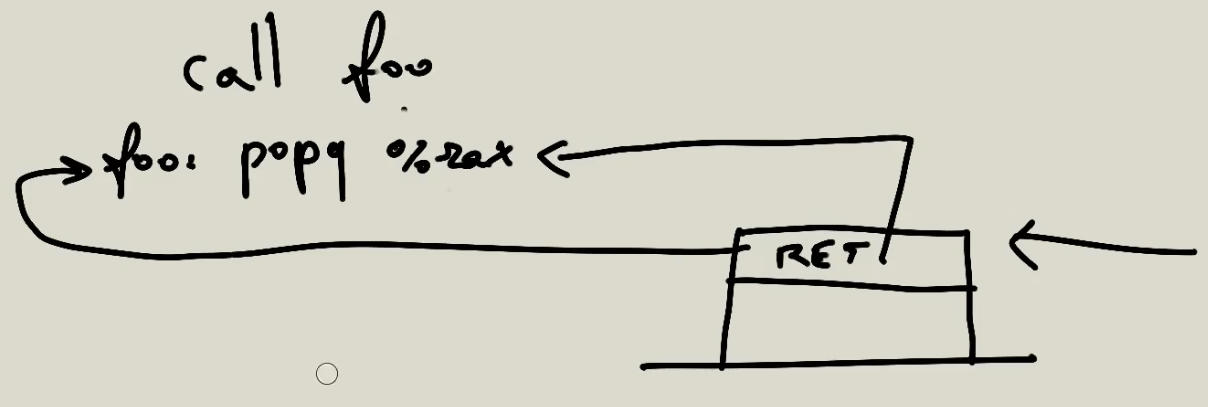 call foo
foo: popq %rax
RET